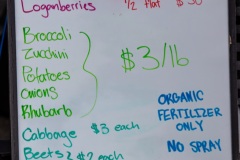 Loganberries ½ flat $30
Broccoli
Zucchini
Potatoes
Onions
Rhubarb
$3/lb
Cabbage $3 each
Beets 2 $2 each
ORGANIC
FERTILIZER
ONLY
NO SPRAY